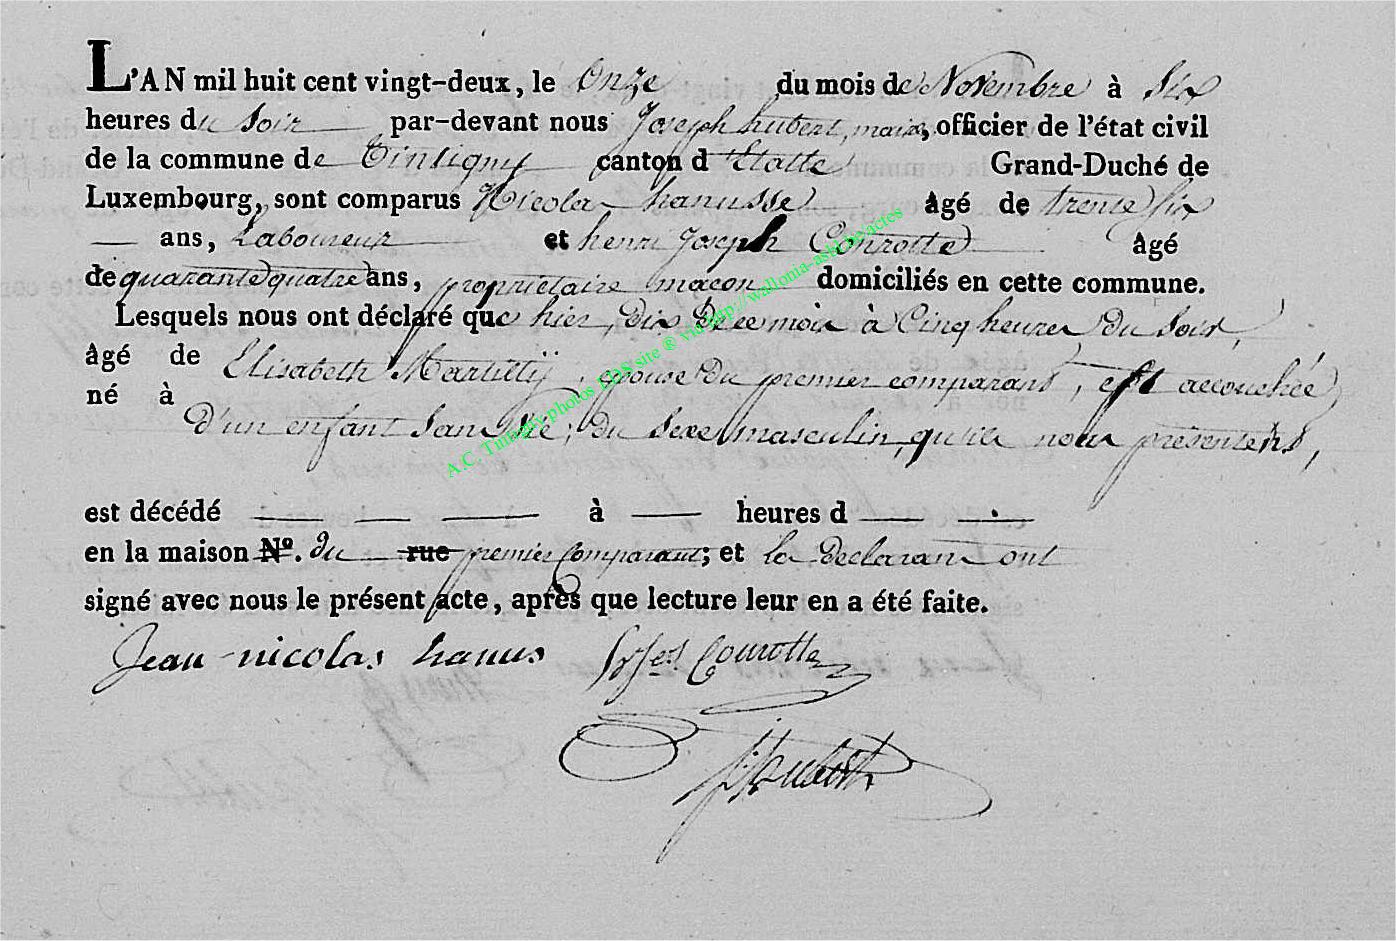 L'AN mil huit cent vingt-deux, le Onze du mois de Novembre à Six
heures du Soir par-devant nous Joseph hubert, maire, officier de l'état civil
de la commune de Tintigny canton d'Etalle Grand-Duché de
Luxembourg, sont comparus Nicolas hanusse âgé de trente six
ans, Laboureur et henri Joseph Conrotte âgé
de quarante quatre ans, propriétaire maçon domiciliés en cette commune.
Lesquels nous ont déclaré que hier, dix De ce mois à Cinq heures du Soir,
âgé de Elisabeth Martilly, epouse Du premier comparant, est accouchée
né à D'un enfant Sans vie, du Sexe masculin, qu'ils nous présentent,
est décédé à heures d
en la maison N°. du rue premier Comparant; et les Declarans ont
signé avec nous le présent acte, après que lecture leur en a été faite.
Jean-nicolas hanus Conrotte
Hubert
A.C. Tintigny photos LDS site ® via http://wallonia-asbl.be/actes